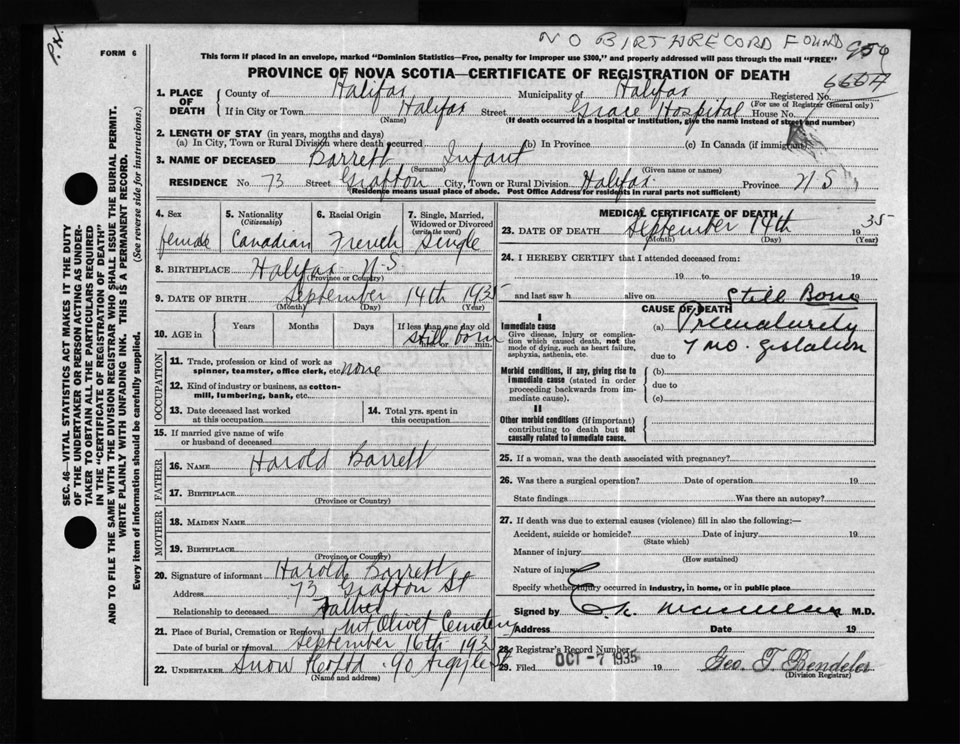 P.H.
NO BIRTH RECORD FOUND
FORM 6
This form if placed in an envelope, marked "Dominion Statistics—Free, penalty for improper use $300," and properly addressed will pass through the mail "FREE"
PROVINCE OF NOVA SCOTIA—CERTIFICATE OF REGISTRATION OF DEATH
1. PLACE OF DEATH
County of Halifax Municipality of Halifax Registered No.
(For use of Registrar General only)
If in City or Town Halifax Street Grace Hospital House No.
(Name) (If death occurred in a hospital or institution, give the name instead of street and number)
2. LENGTH OF STAY (in years, months and days)
(a) In City, Town or Rural Division where death occurred (b) In Province (c) In Canada (if immigrant)
3. NAME OF DECEASED Barrett Infant
(Surname) (Given name or names)
RESIDENCE No. 73 Street Grafton City, Town or Rural Division Halifax Province N S
(Residence means usual place of abode. Post Office Address for residents in rural parts not sufficient)
4. Sex
female
5. Nationality
(Citizenship)
Canadian
6. Racial Origin
French
7. Single, Married, Widowed or Divorced
(write the word)
Single
8. BIRTHPLACE Halifax N-S
(Province or Country)
9. DATE OF BIRTH September 14th 1935
(Month) (Day) (Year)
10. AGE in Years Months Days If less than one day old
still born
hrs. or min.
OCCUPATION
11. Trade, profession or kind of work as
spinner, teamster, office clerk, etc. none
12. Kind of industry or business, as cotton-
mill, lumbering, bank, etc.
13. Date deceased last worked
at this occupation
14. Total yrs. spent in
this occupation
15. If married give name of wife
or husband of deceased
FATHER
16. NAME Harold Barrett
17. BIRTHPLACE
(Province or Country)
MOTHER
18. MAIDEN NAME
19. BIRTHPLACE
(Province or Country)
20. Signature of informant Harold Barrett
Address 73 Grafton St
Relationship to deceased Father
21. Place of Burial, Cremation or Removal Mt Olivet Cemetery
Date of burial or removal September 16th 193
22. UNDERTAKER Snow & Co Ltd 90 Argyle St
(Name and address)
MEDICAL CERTIFICATE OF DEATH
23. DATE OF DEATH September 14th 1935
(Month) (Day) (Year)
24. I HEREBY CERTIFY that I attended deceased from:
19 to 19
and last saw h alive on Still Born
CAUSE OF DEATH
I
Immediate cause
Give disease, injury or complica-
tion which caused death, not the
mode of dying, such as heart failure,
asphyxia, asthenia, etc.
(a) Prematurity
due to 7 mo. gestation
Morbid conditions, if any, giving rise to
immediate cause (stated in order
proceeding backwards from im-
mediate cause).
(b)
due to
(c)
II
Other morbid conditions (if important)
contributing to death but not
causally related to immediate cause.
25. If a woman, was the death associated with pregnancy?
26. Was there a surgical operation? Date of operation 19
State findings Was there an autopsy?
27. If death was due to external causes (violence) fill in also the following:—
Accident, suicide or homicide? Date of injury 19
(State which)
Manner of injury
(How sustained)
Nature of injury
Specify whether injury occurred in industry, in home, or in public place
Signed by M.D.
Address Date 19
28. Registrar's Record Number
29. Filed OCT - 7 1935 19 Geo. T. Bendeler
(Division Registrar)
SEC. 46—VITAL STATISTICS ACT MAKES IT THE DUTY
OF THE UNDERTAKER OR PERSON ACTING AS UNDER-
TAKER TO OBTAIN ALL THE PARTICULARS REQUIRED
IN THE "CERTIFICATE OF REGISTRATION OF DEATH"
AND TO FILE THE SAME WITH THE DIVISION REGISTRAR WHO SHALL ISSUE THE BURIAL PERMIT.
WRITE PLAINLY WITH UNFADING INK. THIS IS A PERMANENT RECORD.
Every item of information should be carefully supplied. (See reverse side for instructions.)